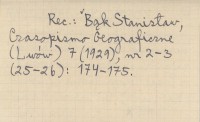 Rec.: Bąk Stanisław,
Czasopismo Geograficzne
(Lwów) 7 (1929), nr 2-3
(25-26): 174-175.